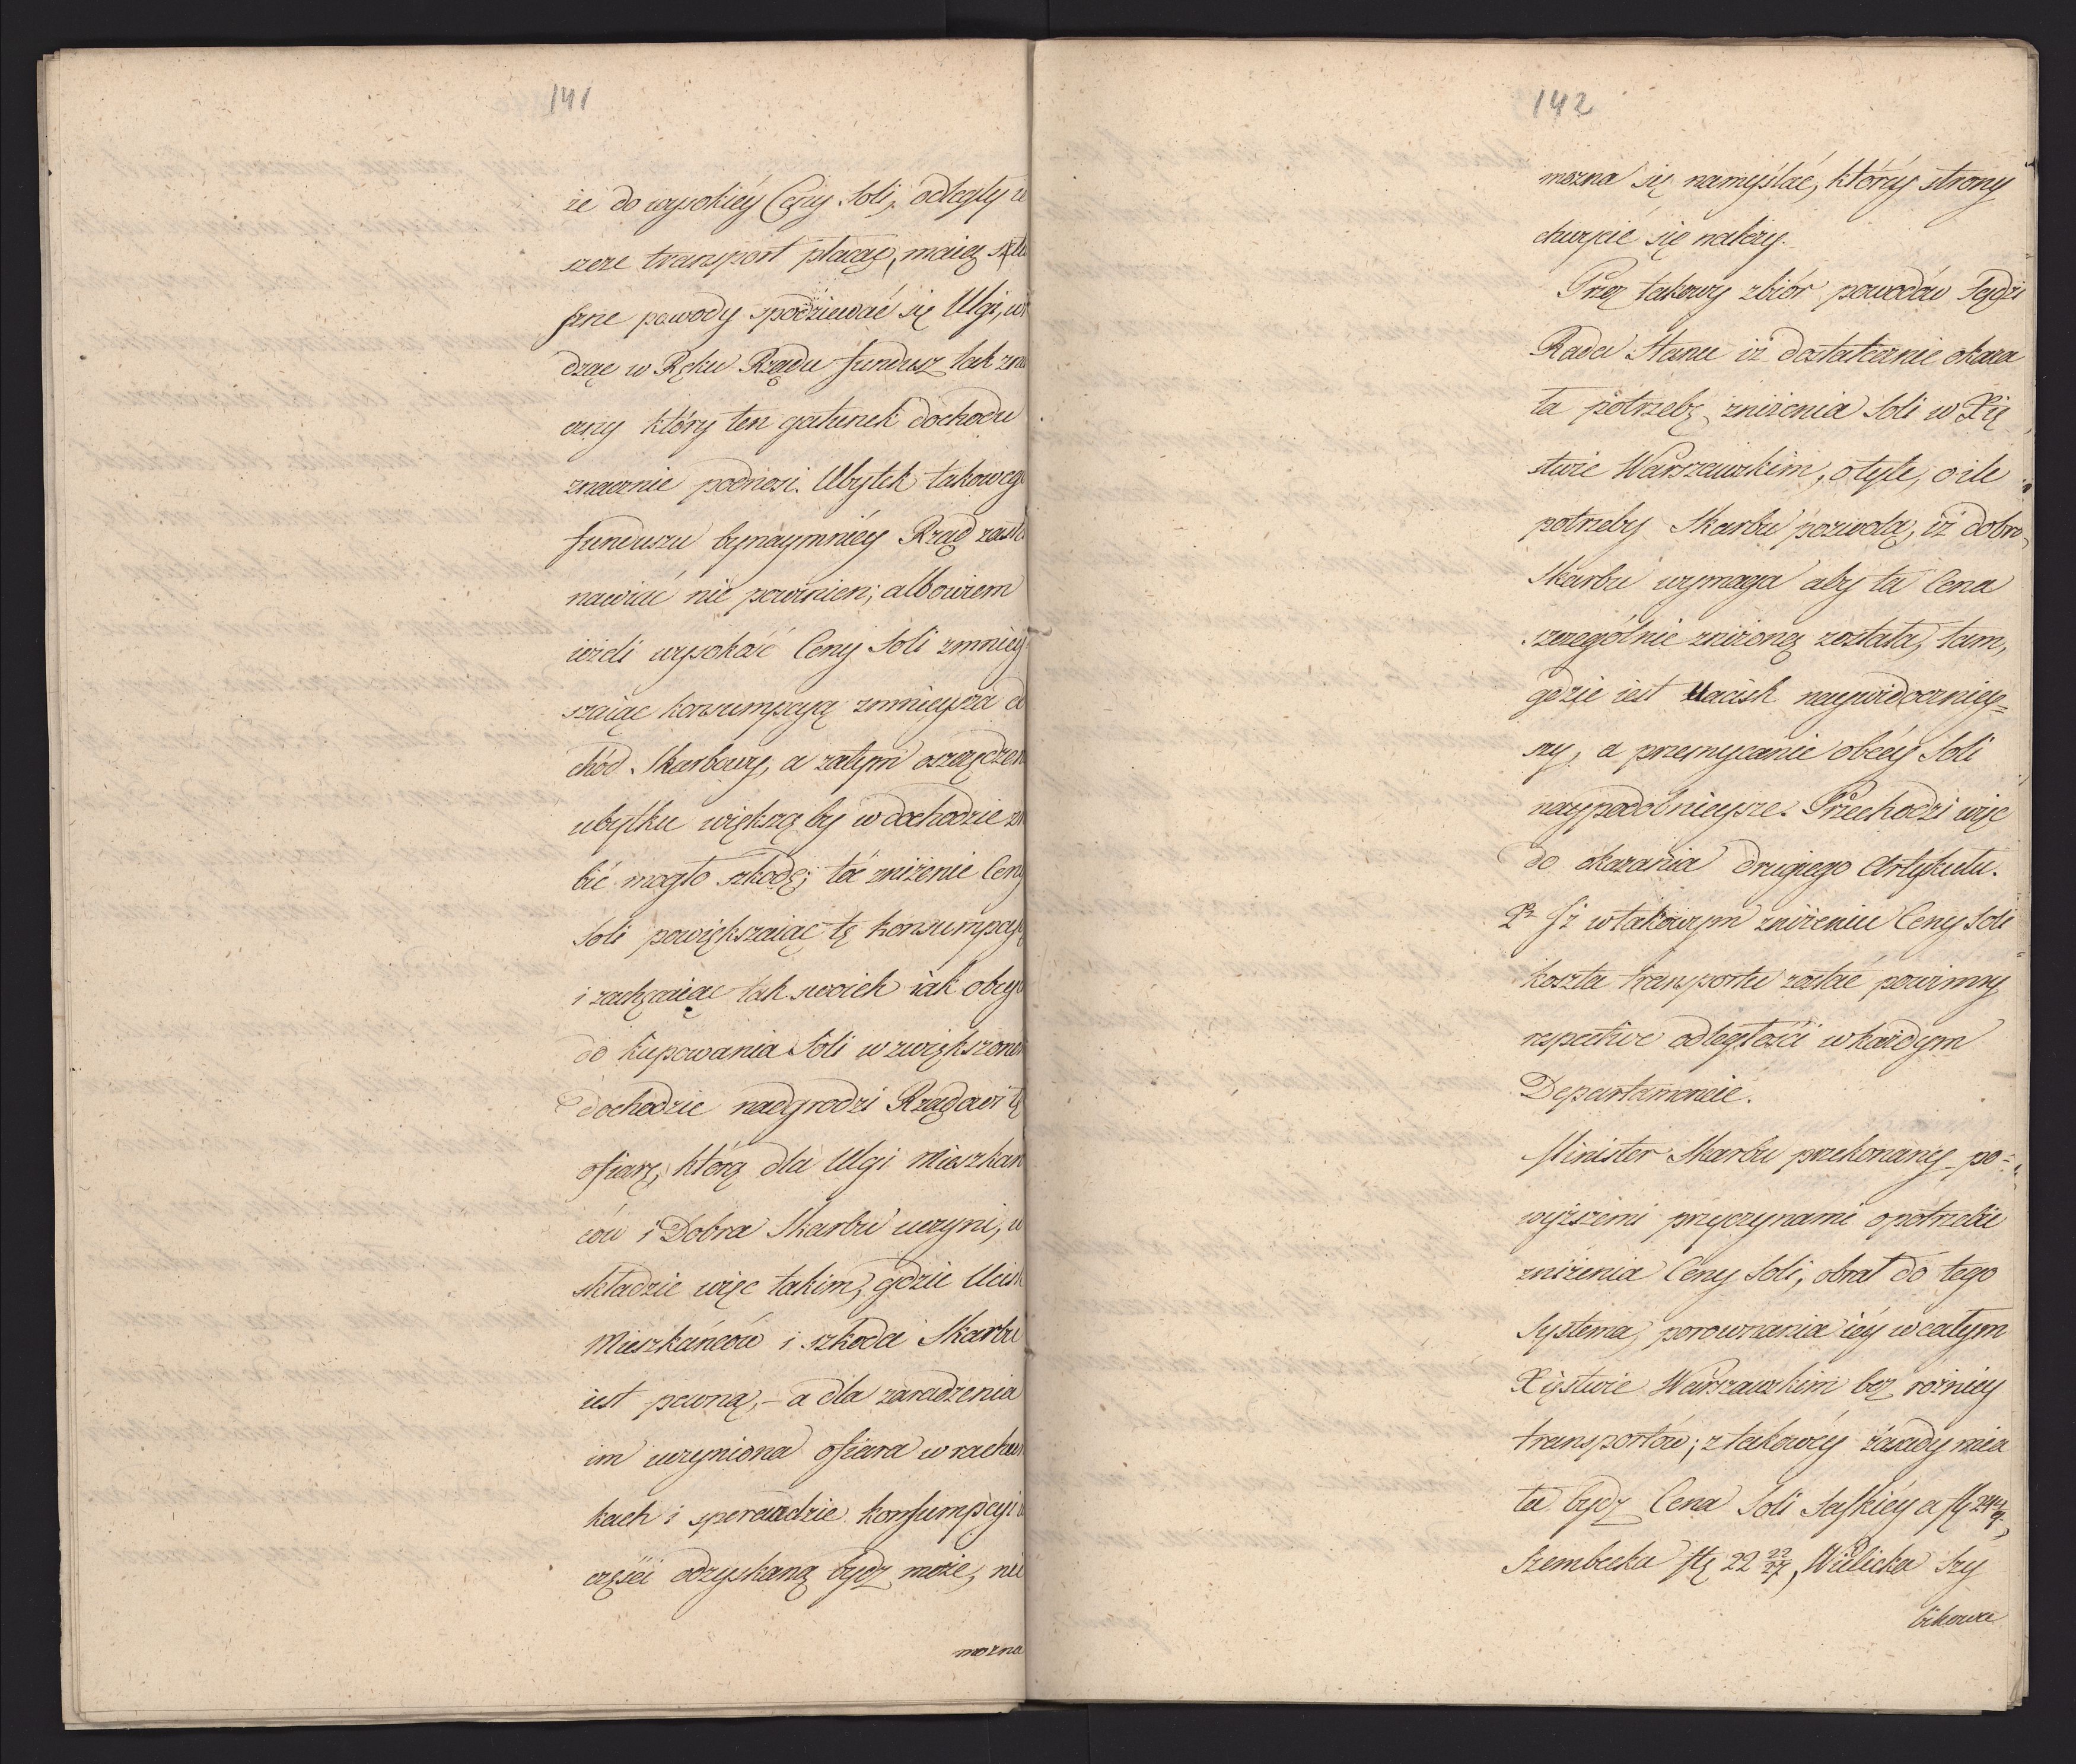 141
że do wysokiéy Ceny Soli, odległy i
szere transport płacąc, maią słu
szne powody spodziewać się Ulgi, wi
dząc w Ręku Rządu fundusz tak zna
czny który ten gatunek dochodu
znacznie podnosi. Ubytek takowego
funduszu bynaymniéy Rząd zasta
nawiać nie powinien; albowiem
ieżeli wysokość Ceny Soli zmniey
szaiąc konsumpcyą zmnieysza do
chód Skarbowy, a zatym oszczędzen
ubytku większą by w dochodzie zro
bić mogło szkodę; toć zniżenie Ceny
Soli powiększaiąc tę konsumpcyą
i zachęcaiąc tak swoich iak obcych
do kupowania Soli w zwiększonym
dochodzie nadgrodzi Rządowi tę
ofiarę, którą dla Ulgi Mieszkań
ców i Dobra Skarbu uczyni, w
składzie więc takim, gdzie Ucisk
Mieszkańców i szkoda Skarbu
iest pewną, – a dla zaradzenia
im uczyniona ofiara w rachun
kach i sperandzie konsumpcyi w
części odzyskaną bydź może, nie
można
142
można się namyślać, któréy strony
chwycić się należy.
Przez takowy zbiór powodów Sądzi
Rada Stanu iż dostatecznie okaza
ła potrzebę zniżenia Soli w Xię
stwie Warszawskim, o tyle, o ile
potrzeby Skarbu pozwolą, iż dobro
Skarbu wymaga aby ta Cena
szczególnie zniżoną została, tam,
gdzie iest Ucisk naywidocznieg=
szy, a przemycanie obcéy Soli
naypodobnieysze. Przechodzi więc
do okazania drugiego Artykułu.
2r Iż w takowym zniżeniu Ceny Soli
koszta transportu zostać powinny
respective odległości w każdym
Departamencie.
Minister Skarbu przekonany po=
wyższemi przyczynami o potrzebie
zniżenia Ceny Soli, obrał do tego
Systema, porownania iéy w całym
Xięstwie Warszawskim bez różnicy
transportów; z takowéy zasady mia
ła bydź Cena Soli Saskiéy a fl 24
Szembecka fl 22 22/27, Wielicka Szy
bikowa